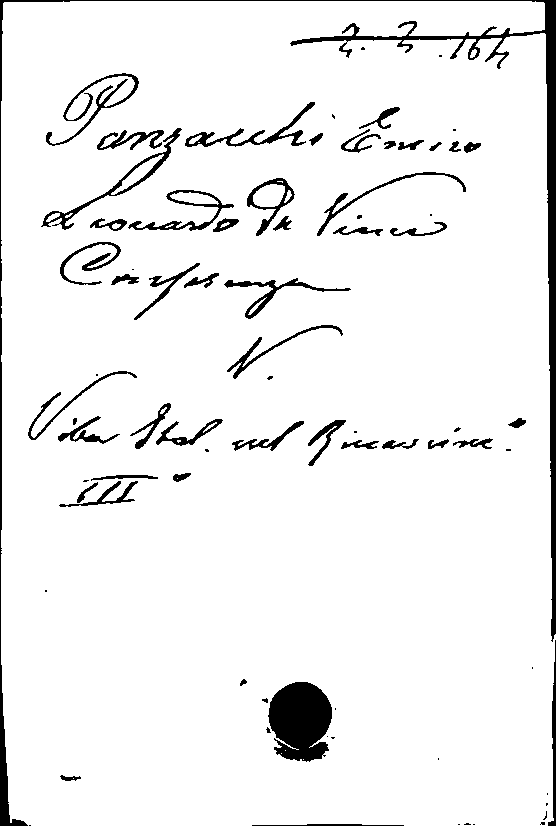 2. 2. 164
Panzacchi Enrico
Leonardo da Vinci
Conferenza
V.
Vita Ital. nel Rinascim.º
III º